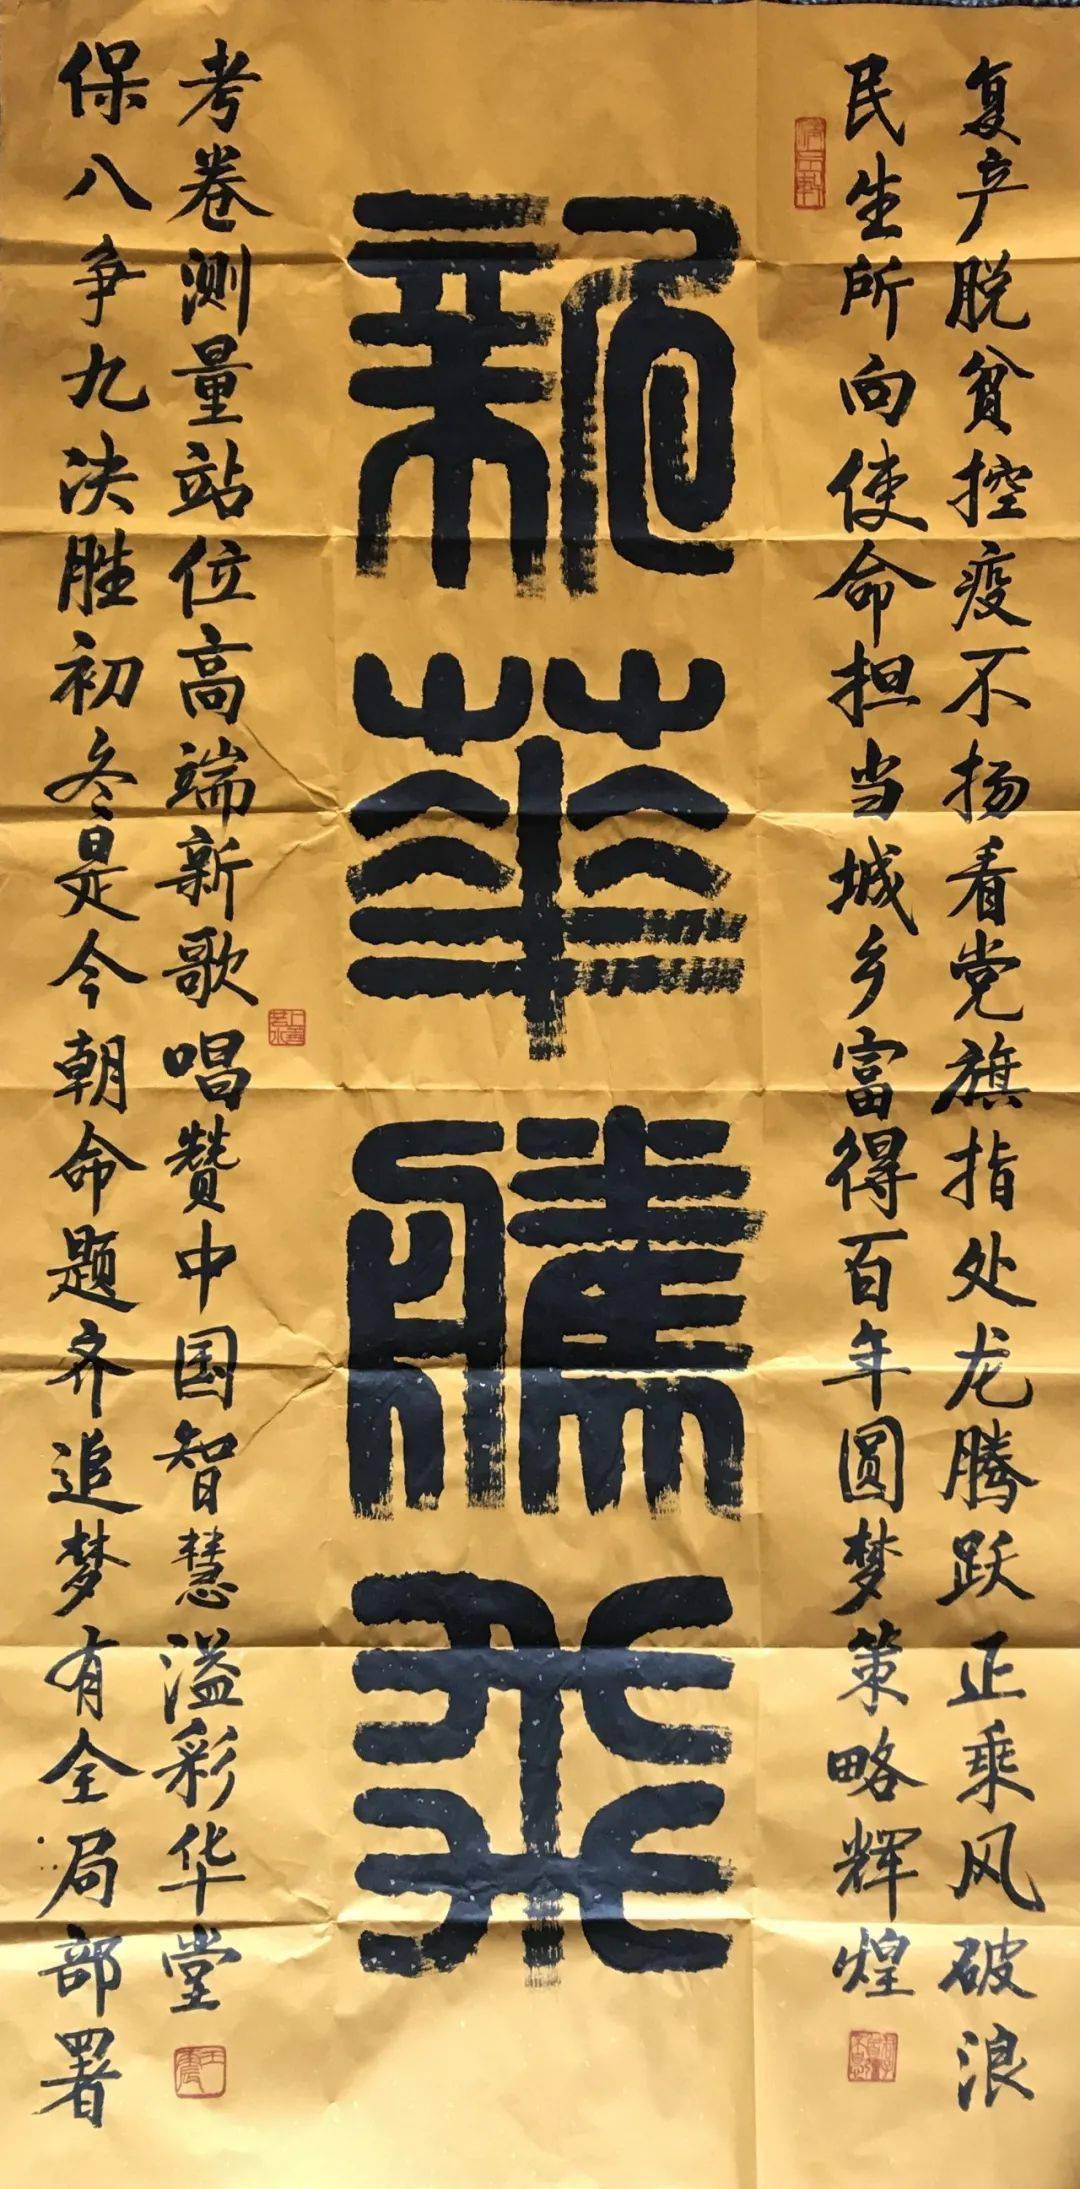 复产脱贫控疫不扬看党旗指处龙腾跃正乘风破浪
民生所向使命担当城乡富得百年圆梦策略辉煌
新華騰飛
上善若水
考卷测量站位高端新歌唱赞中国智慧溢彩华堂
保八争九决胜初冬是今朝命题齐追梦有全局部署